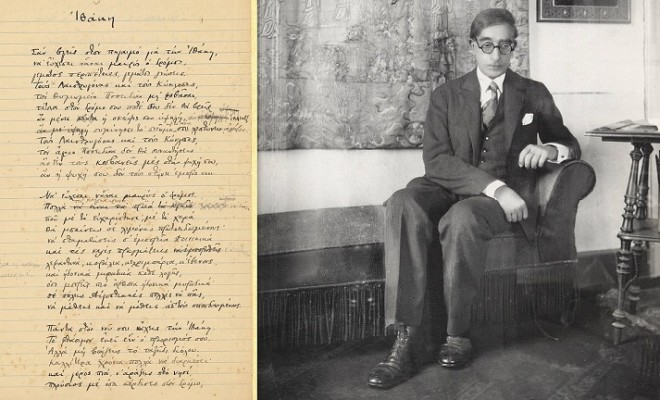 Ἰθάκη
Σὰν βγεῖς στὸν πηγαιμὸ γιὰ τὴν Ἰθάκη,
νὰ εὔχεσαι νἆναι μακρὺς ὁ δρόμος,
γεμάτος περιπέτειες, γεμάτος γνώσεις.
Τοὺς Λαιστρυγόνας καὶ τοὺς Κύκλωπας,
τὸν θυμωμένο Ποσειδῶνα μὴ φοβᾶσαι,
τέτοια στὸν δρόμο σου ποτέ σου δὲν θὰ βρεῖς,
ἂν μένει ἡ σκέψις σου ὑψηλή,
συγκίνησις τὸ
Τοὺς Λαιστρυγόνας καὶ τοὺς Κύκλωπας,
τὸν ἄγριο Ποσειδῶνα δὲν θὰ συναντήσεις,
ἂν δὲν τοὺς κουβανεῖς μὲς στὴν ψυχή σου,
ἂν ἡ ψυχή σου δὲν τοὺς στήνει ἐμπρός σου.
Νὰ εὔχεσαι νἆναι μακρὺς ὁ δρόμος.
Πολλὰ
ποὺ μὲ τί εὐχαρίστησι, μὲ τί χαρὰ
θὰ μπαίνεις σὲ λιμένας πρωτοειδωμένους·
νὰ σταματήσεις σ' ἐμπορεῖα Φοινικικά,
καὶ τὲς καλὲς πραγμάτειες ν' ἀποκτήσεις,
σεντέφια καὶ κοράλλια, κεχριμπάρια κ' ἔβενους,
καὶ ἡδονικὰ μυρωδικὰ κάθε λογῆς,
ὅσο μπορεῖς πιὸ ἄφθονα ἡδονικὰ μυρωδικά·
σὲ πόλεις Αἰγυπτιακὲς πολλὲς νὰ πᾶς,
νὰ μάθεις καὶ νὰ μάθεις ἀπ' τοὺς σπουδασμένους.
Πάντα στὸν νοῦ σου νἄχεις τὴν Ἰθάκη.
Τὸ φθάσιμον ἐκεῖ εἶν' ὁ προορισμός σου.
Ἀλλὰ μὴ βιάζεις τὸ ταξεῖδι διόλου.
Καλλίτερα χρόνια πολλὰ νὰ διαρκέσει·
καὶ γέρος πιὰ ν' ἀράξεις στὸ νησί,
πλούσιος μὲ ὅσα κέρδισες στὸν δρόμο,